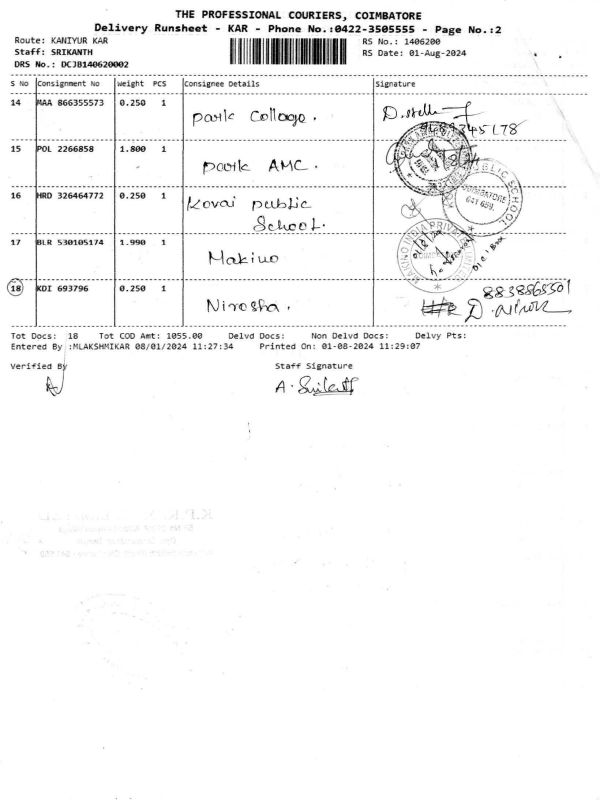 THE PROFESSIONAL COURIERS, COIMBATORE
Delivery Runsheet - KAR - Phone No.:0422-3505555 - Page No.:2
Route: KANIYUR KAR
RS No.: 1406200
Staff: SRIKANTH
RS Date: 01-Aug-2024
DRS No.: DCJB140620002
S No Consignment No Weight PCS Consignee Details Signature
14 MAA 866355573 0.250 1
Park College.
15 POL 2266858 1.800 1
Park AMC.
16 HRD 326464772 0.250 1 Kovai public
School.
PUBLIC SCHOOL
COIMBATORE
641 659.
17 BLR 530105174 1.990 1
Makino
MAKINO INDIA PRIVATE LIMITED
18 KDI 693796 0.250 1
8838865501
Nirosha.
Tot Docs: 18 Tot COD Amt: 1055.00 Delvd Docs: Non Delvd Docs: Delvy Pts:
Entered By :MLAKSHMIKAR 08/01/2024 11:27:34 Printed On: 01-08-2024 11:29:07
Verified By Staff Signature
A. Srikanth